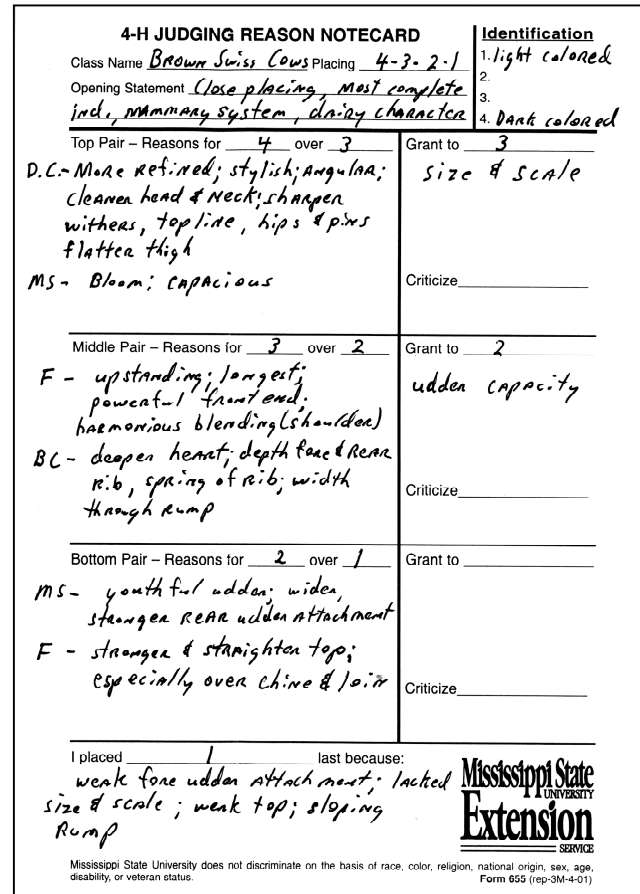 4-H JUDGING REASON NOTECARD
Class Name Brown Swiss Cows Placing 4-3-2-1
Opening Statement Close placing, Most complete
ind., mammary system, dairy character
Identification
1. light colored
2.
3.
4. Dark colored
Top Pair – Reasons for 4 over 3
D.C.- More refined; stylish; Angular;
cleaner head & neck; sharper
withers, topline, hips & pins
flatter thigh
MS- Bloom; capacious
Grant to 3
size & scale
Criticize
Middle Pair – Reasons for 3 over 2
F - upstanding; longest;
powerful front end;
harmonious blending (shoulder)
BC - deeper heart; depth fore & rear
rib, spring of rib; width
through rump
Grant to 2
udder capacity
Criticize
Bottom Pair – Reasons for 2 over 1
MS- youthful udder; wider,
stronger rear udder attachment
F - stronger & straighter top;
especially over chine & loin
Grant to
Criticize
I placed 1 last because:
weak fore udder attachment; lacked
size & scale; weak top; sloping
Rump
Mississippi State
UNIVERSITY
Extension
SERVICE
Mississippi State University does not discriminate on the basis of race, color, religion, national origin, sex, age,
disability, or veteran status.
Form 655 (rep-3M-4-01)